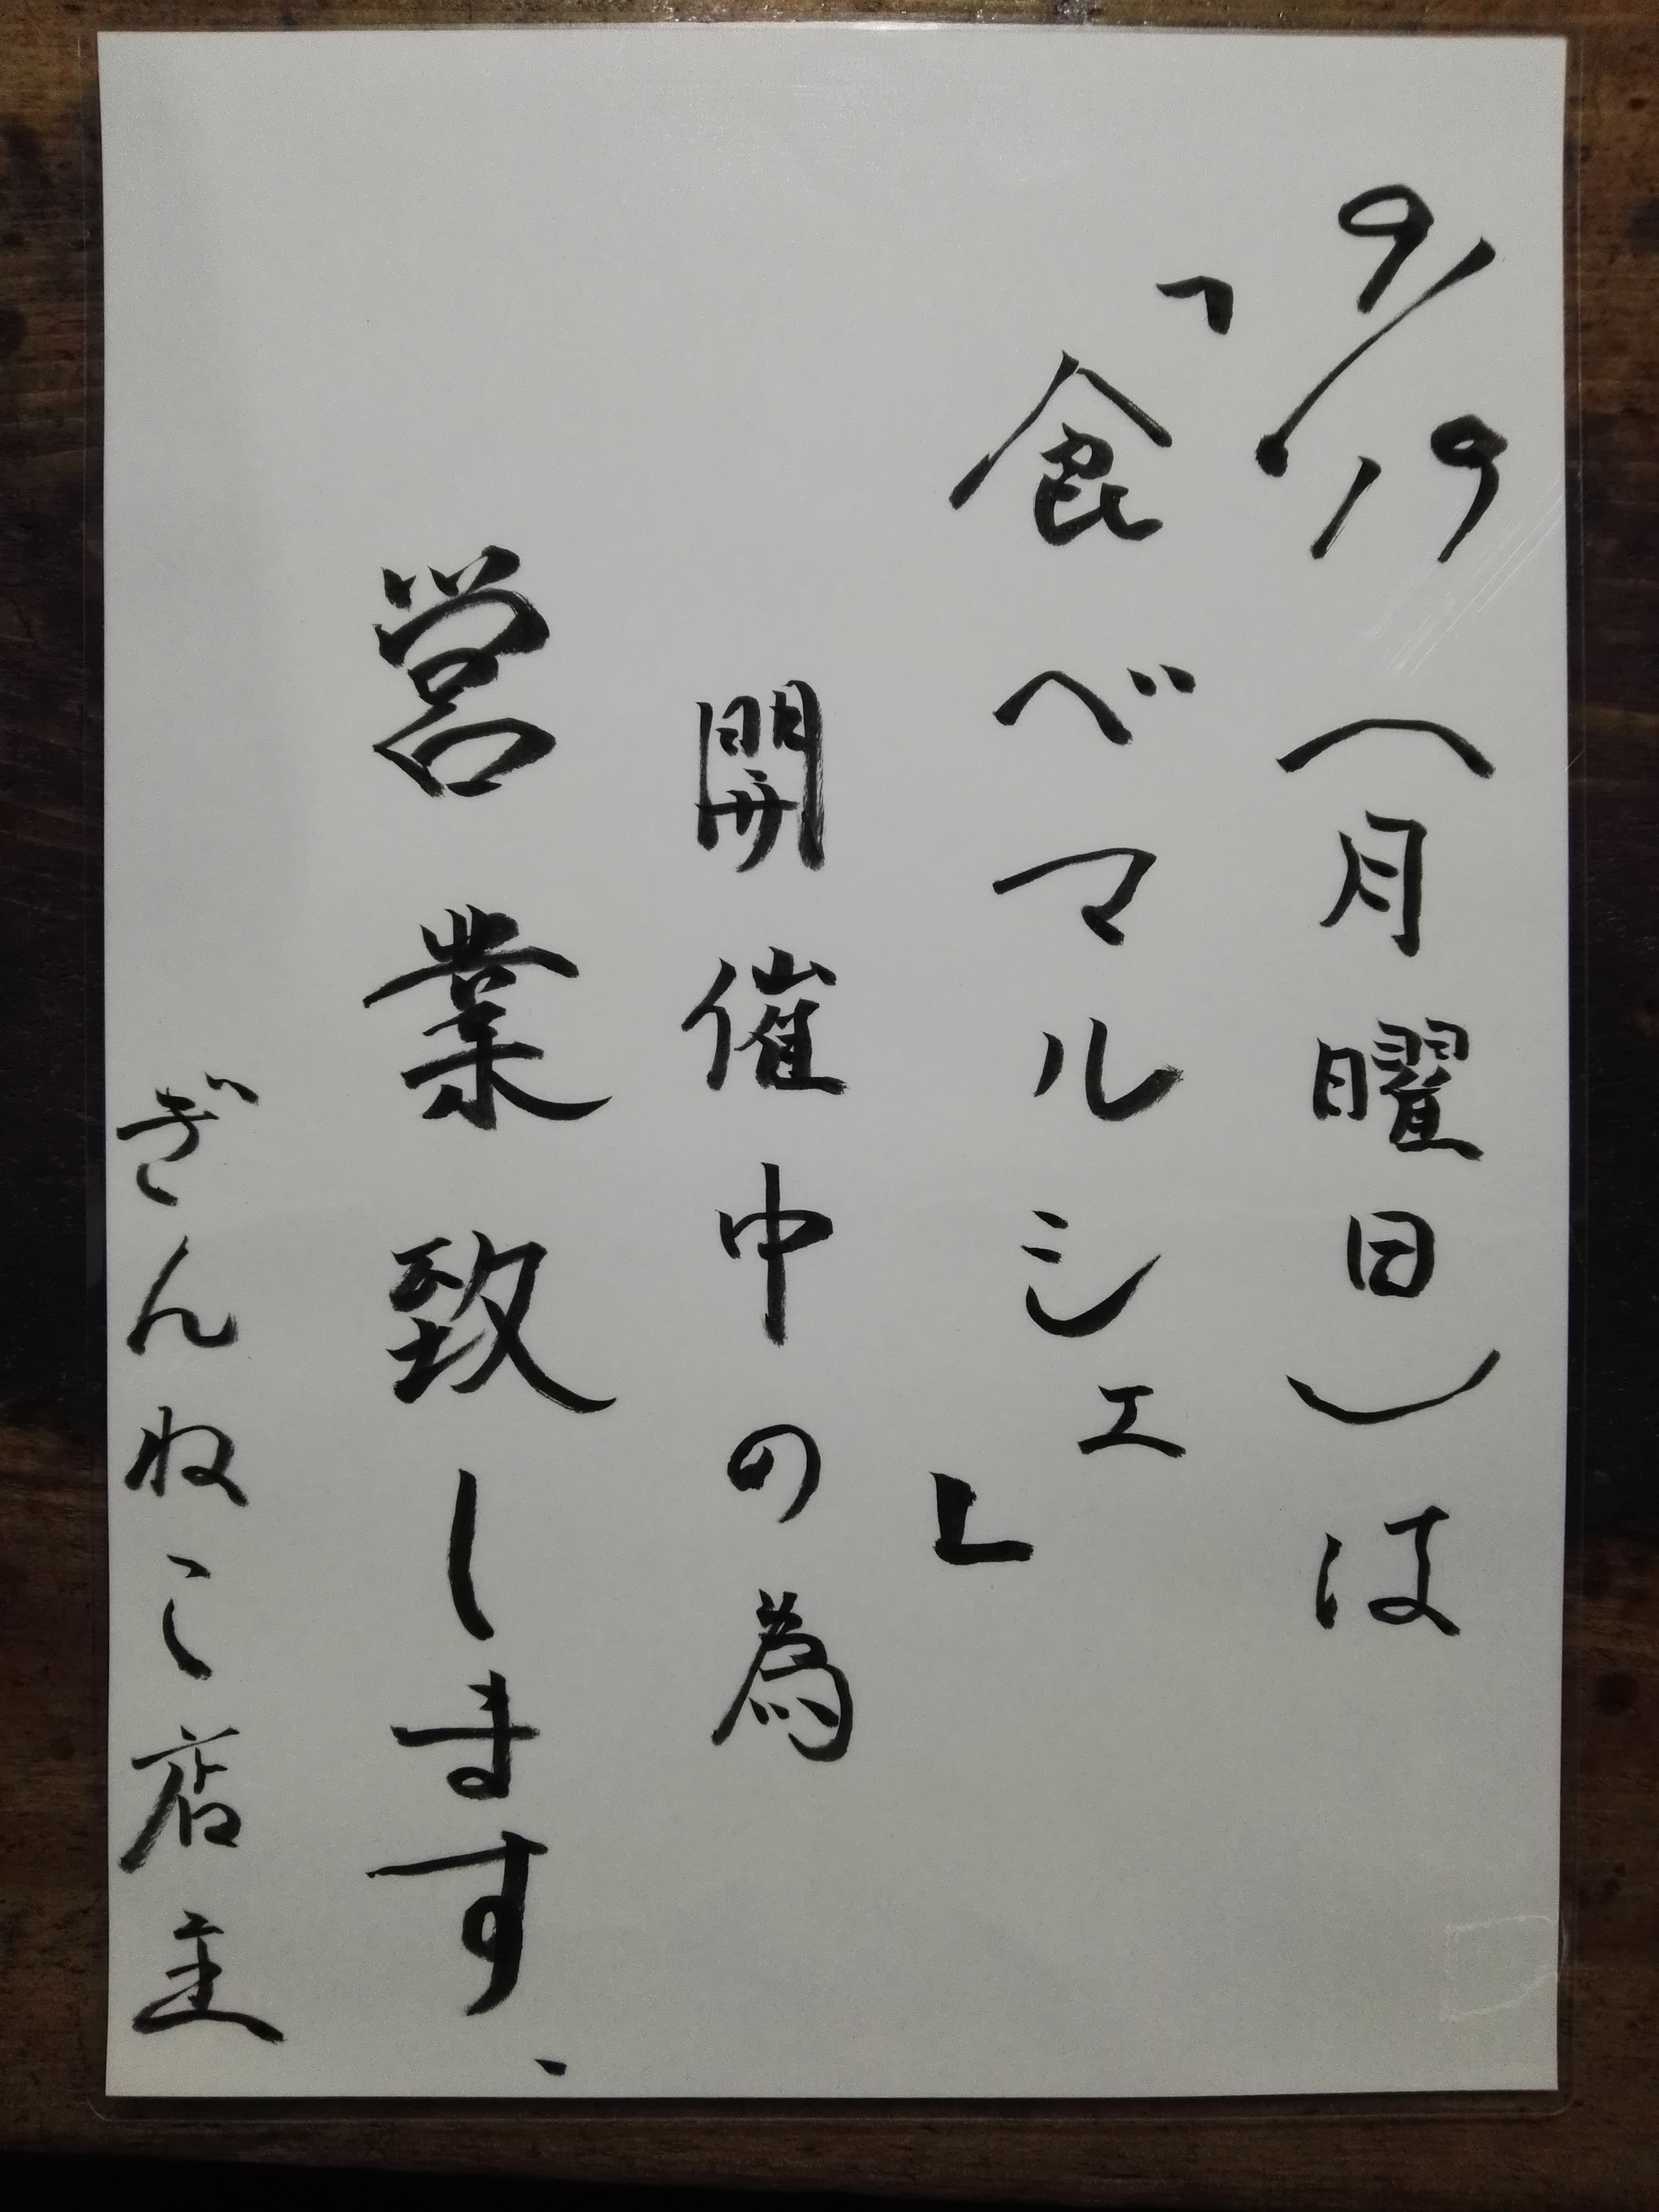 9/19(月曜日)は
「食べマルシェ」
開催中の為
営業致します、
ぎんねこ店主